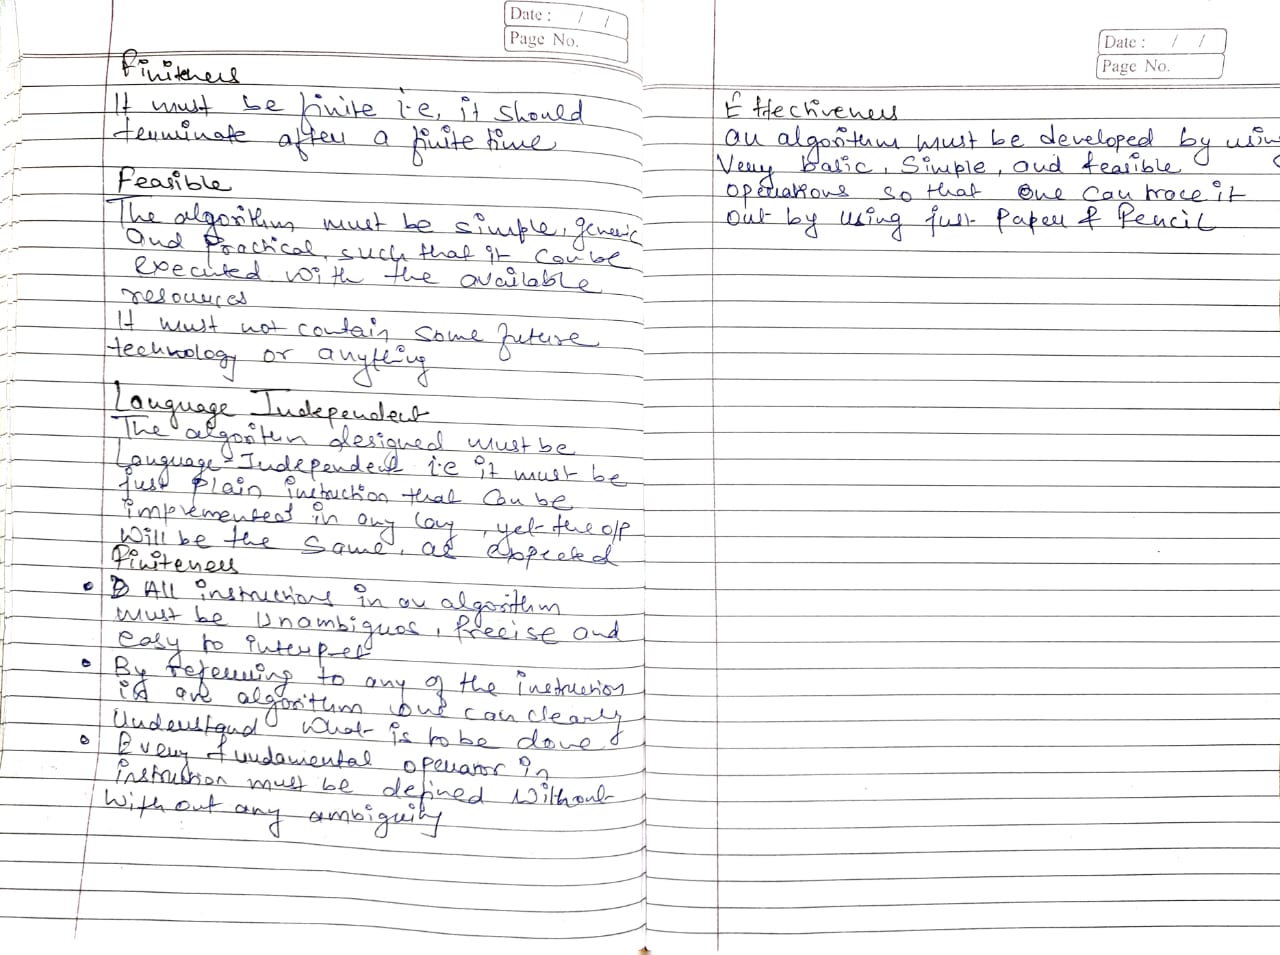 Date : / /
Page No.
Finiteness
It must be finite i.e, it should
terminate after a finite time
Feasible
The algorithm must be simple, generic
and Practical, such that it can be
executed with the available
resources
It must not contain some future
technology or anything
Language Independent
The algorithm designed must be
Language-Independent i.e it must be
just plain instruction that can be
implemented in any lang, yet the o/p
will be the same, as expected
Finiteness
• All instructions in an algorithm
must be Unambiguos, Precise and
easy to interpret
• By referring to any of the instruction
in an algorithm one can clearly
Understand what is to be done
• Every fundamental operator in
instruction must be defined without
without any ambiguity
Date : / /
Page No.
Effectiveness
an algorithm must be developed by using
Very basic, Simple, and feasible
operations so that one can trace it
out by using just Paper & Pencil